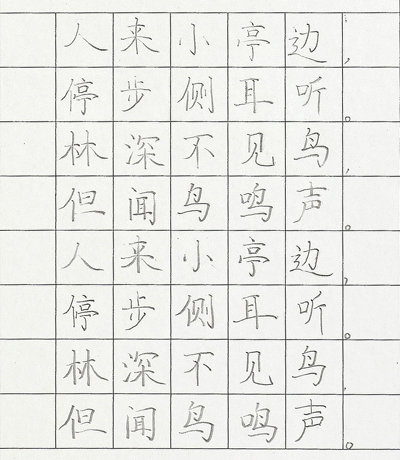 人来小亭边,
停步侧耳听。
林深不见鸟,
但闻鸟鸣声。
人来小亭边,
停步侧耳听。
林深不见鸟,
但闻鸟鸣声。